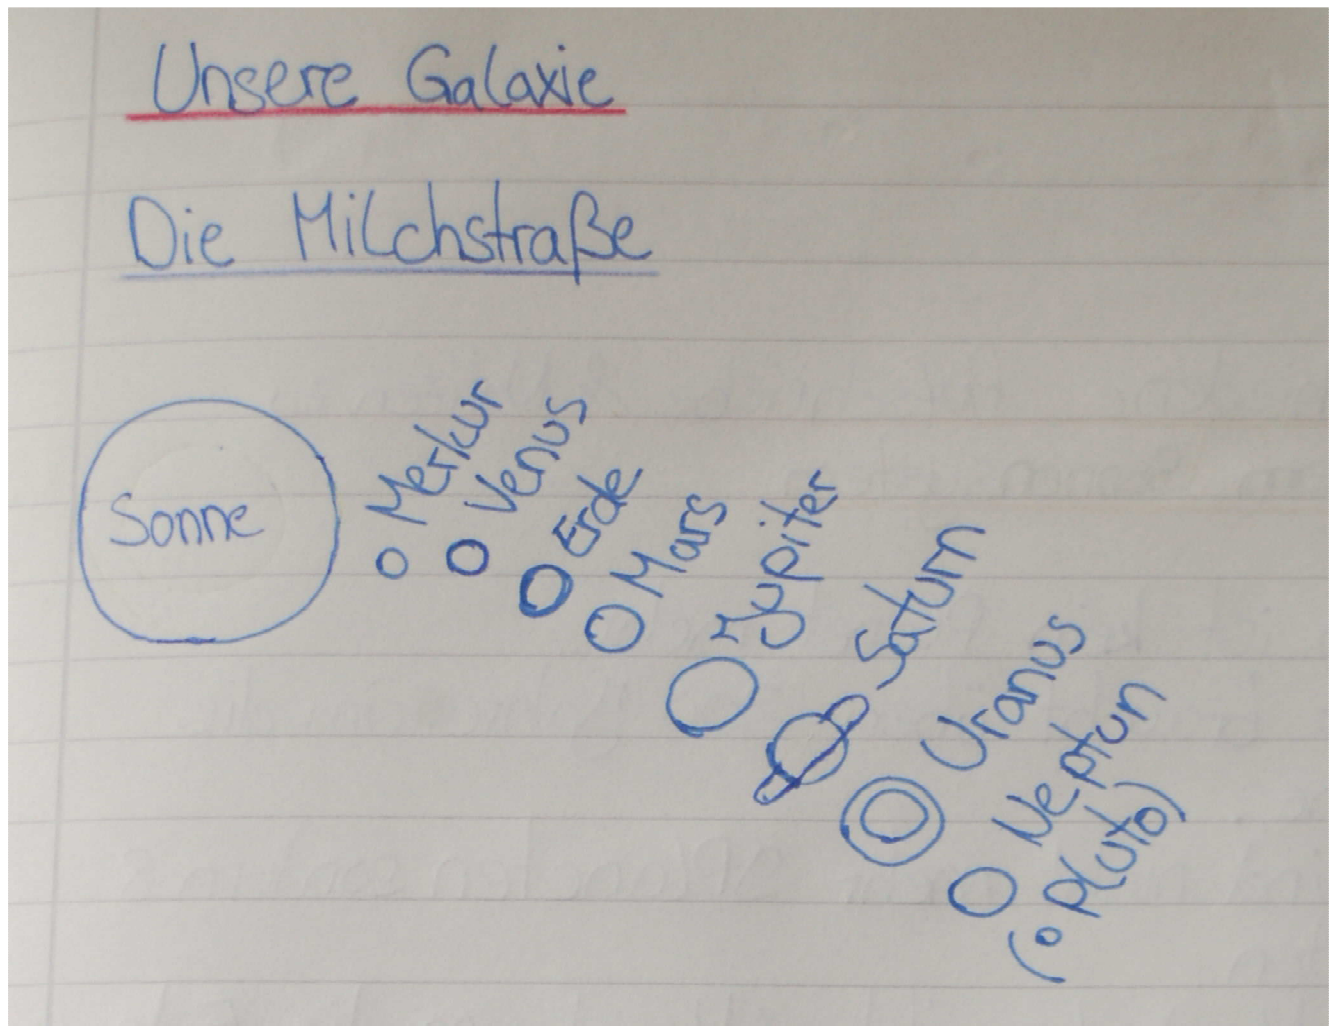 Unsere Galaxie
Die Milchstraße
Sonne
Merkur
Venus
Erde
Mars
Jupiter
Saturn
Uranus
Neptun
(Pluto)